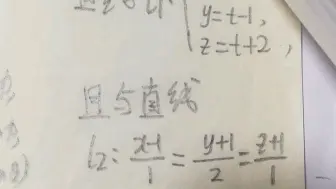 y=t-1,
z=t+2,
且与直线
l2: x-1/1 = y+1/2 = z+1/1